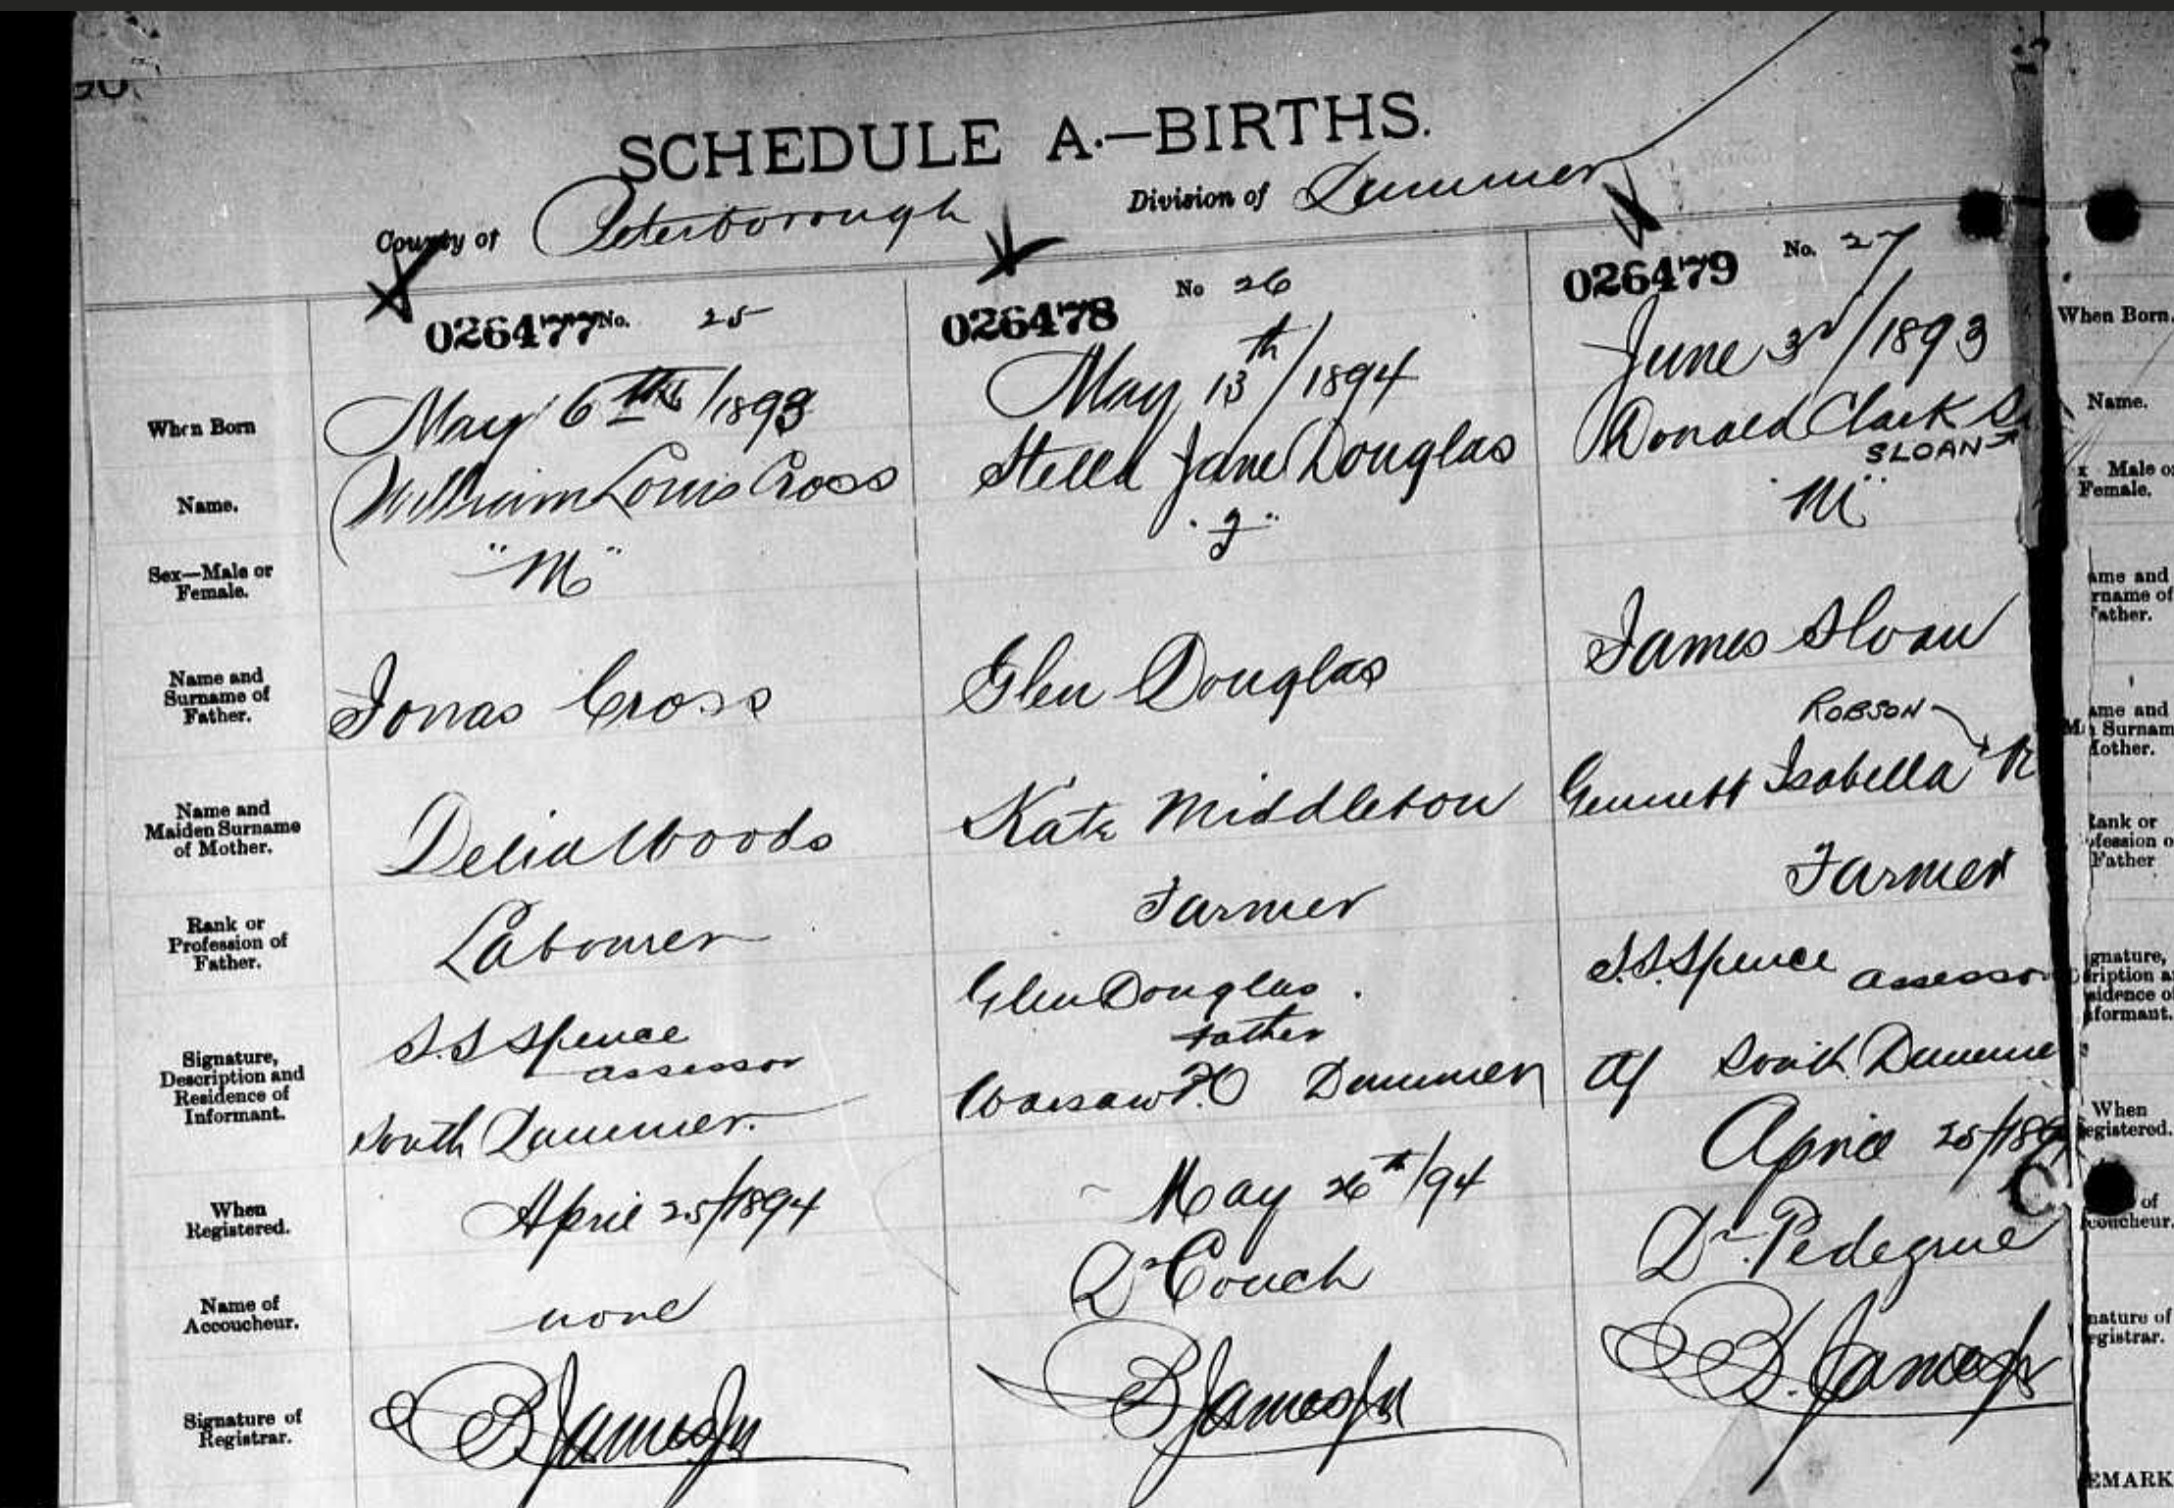 SCHEDULE A.—BIRTHS.
County of Peterborough Division of Dummer
026477 No. 25
026478 No 26
026479 No. 27
When Born
May 6th /1893
May 13th/1894
June 3rd/1893
Name.
William Louis Cross
Stella Jane Douglas
Donald Clark S
SLOAN
Sex—Male or
Female.
"M"
"f"
"M"
Name and
Surname of
Father.
Jonas Cross
Glen Douglas
James Sloan
Name and
Maiden Surname
of Mother.
Delia Woods
Kate Middleton
ROBSON
Isabella R
Rank or
Profession of
Father.
Labourer
Farmer
Farmer
Signature,
Description and
Residence of
Informant.
S.S Spence
assessor
South Dummer.
Glen Douglas.
Father
Warsaw P.O Dummer
S.S Spence assessor
of South Dumme
When
Registered.
April 25/1894
May 26th/94
April 25/189
Name of
Accoucheur.
none
Dr Couch
Dr. Pedegrue
Signature of
Registrar.
B James Jr
B James Jr
B. James Jr
When Born.
Name.
x Male or
Female.
ame and
rname of
ather.
ame and
Surnam
other.
Rank or
fession o
Father
ignature,
ription a
sidence of
formant.
When
egistered.
of
coucheur.
nature of
gistrar.
EMARK